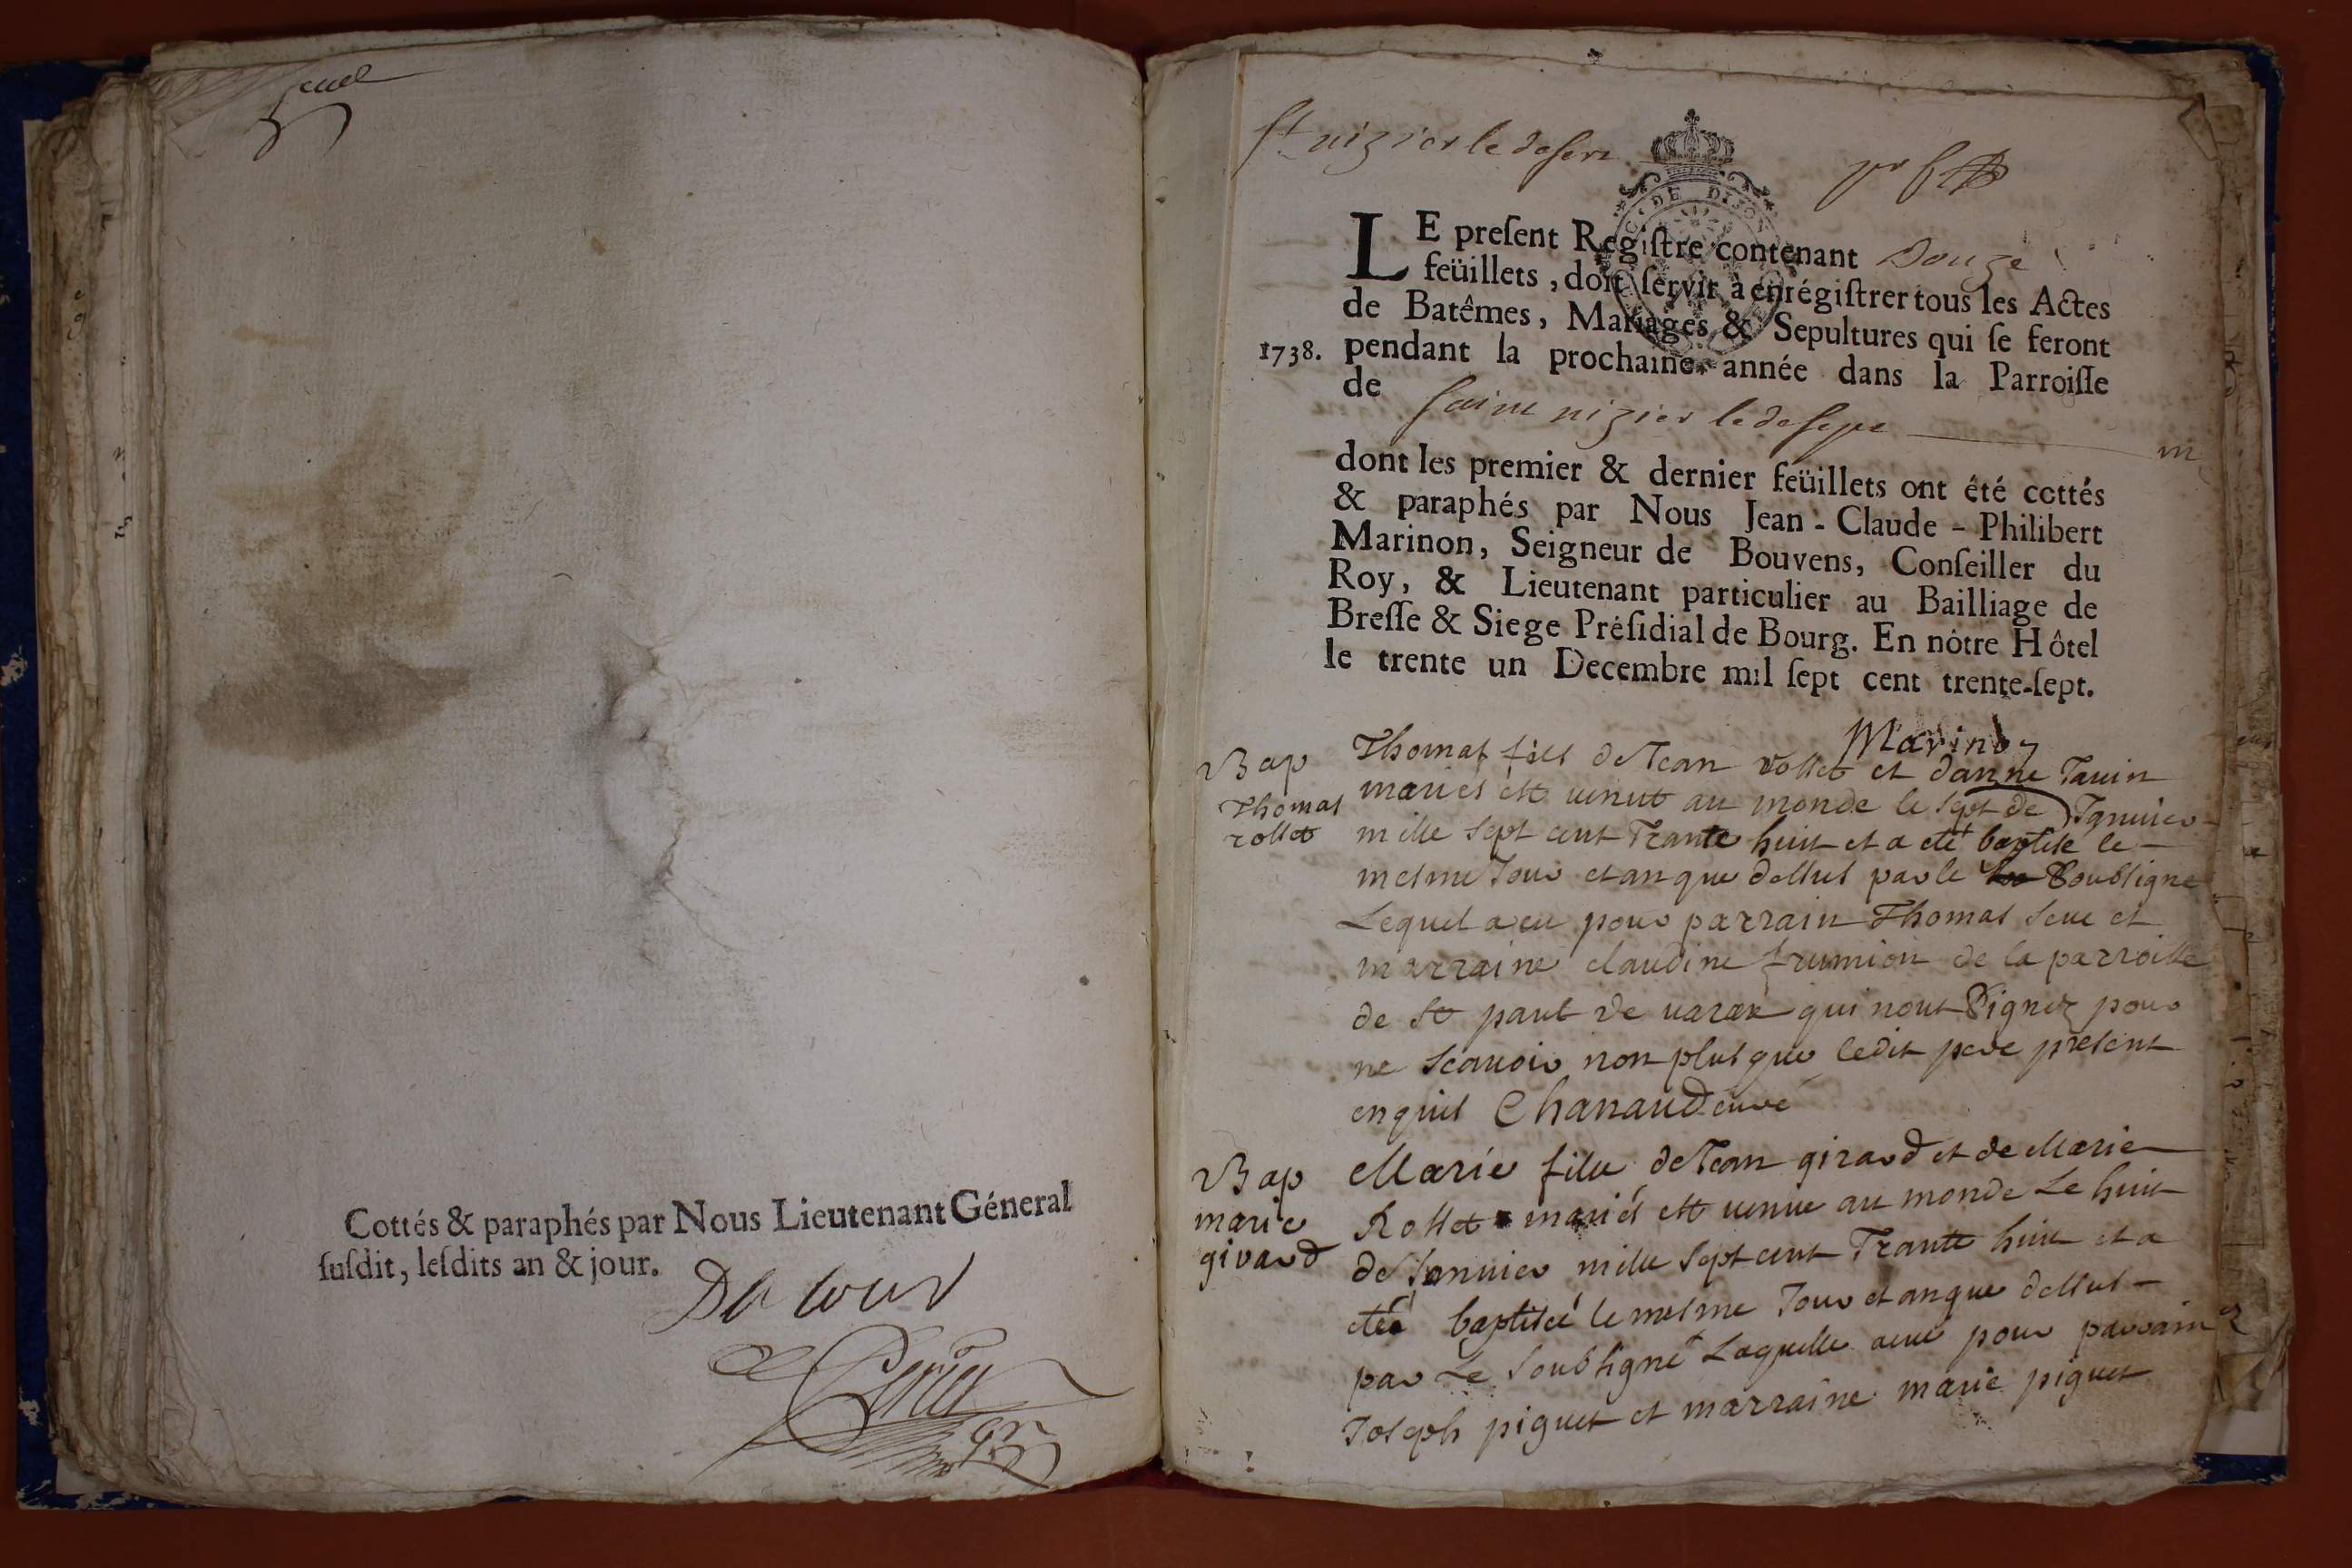 Cottés & paraphés par Nous Lieutenant Géneral
ſuſdit, leſdits an & jour.
st nizier le desert
DE DIJON
LE preſent Regiſtre contenant Douze
feüillets, doit ſervir à enrégiſtrer tous les Actes
de Batêmes, Mariages & Sepultures qui ſe feront
1738. pendant la prochaine année dans la Parroiſſe
de saint nizier le desert
dont les premier & dernier feüillets ont été cottés
& paraphés par Nous Jean-Claude-Philibert
Marinon, Seigneur de Bouvens, Conſeiller du
Roy, & Lieutenant particulier au Bailliage de
Breſſe & Siege Préſidial de Bourg. En nôtre Hôtel
le trente un Decembre mil ſept cent trente-ſept.
Marinon
Bap
Thomas
rollet
Thomas fils de Jean rollet et danne Tavin
mariés est venut au monde le sept de Janvier
mille sept cent Trante huit et a eté baptise le
mesme Jour et an que dessus par le Soubsigne
Lequel a eu pour parrain Thomas seve et
marraine claudine frumion de la parroisse
de st paul de varax qui nont Signez pour
ne scavoir non plus que ledit pere present
enquis Chanaudeuvre
Bap
marie
girard
Marie fille de Jean girard et de Marie
Rollet mariés est venue au monde Le huit
de Janvier mille sept cent Trante huit et a
etée baptisée le mesme Jour et an que dessus
par Le soubsigné Laquelle a eue pour parrain
Joseph piguet et marraine marie piguet